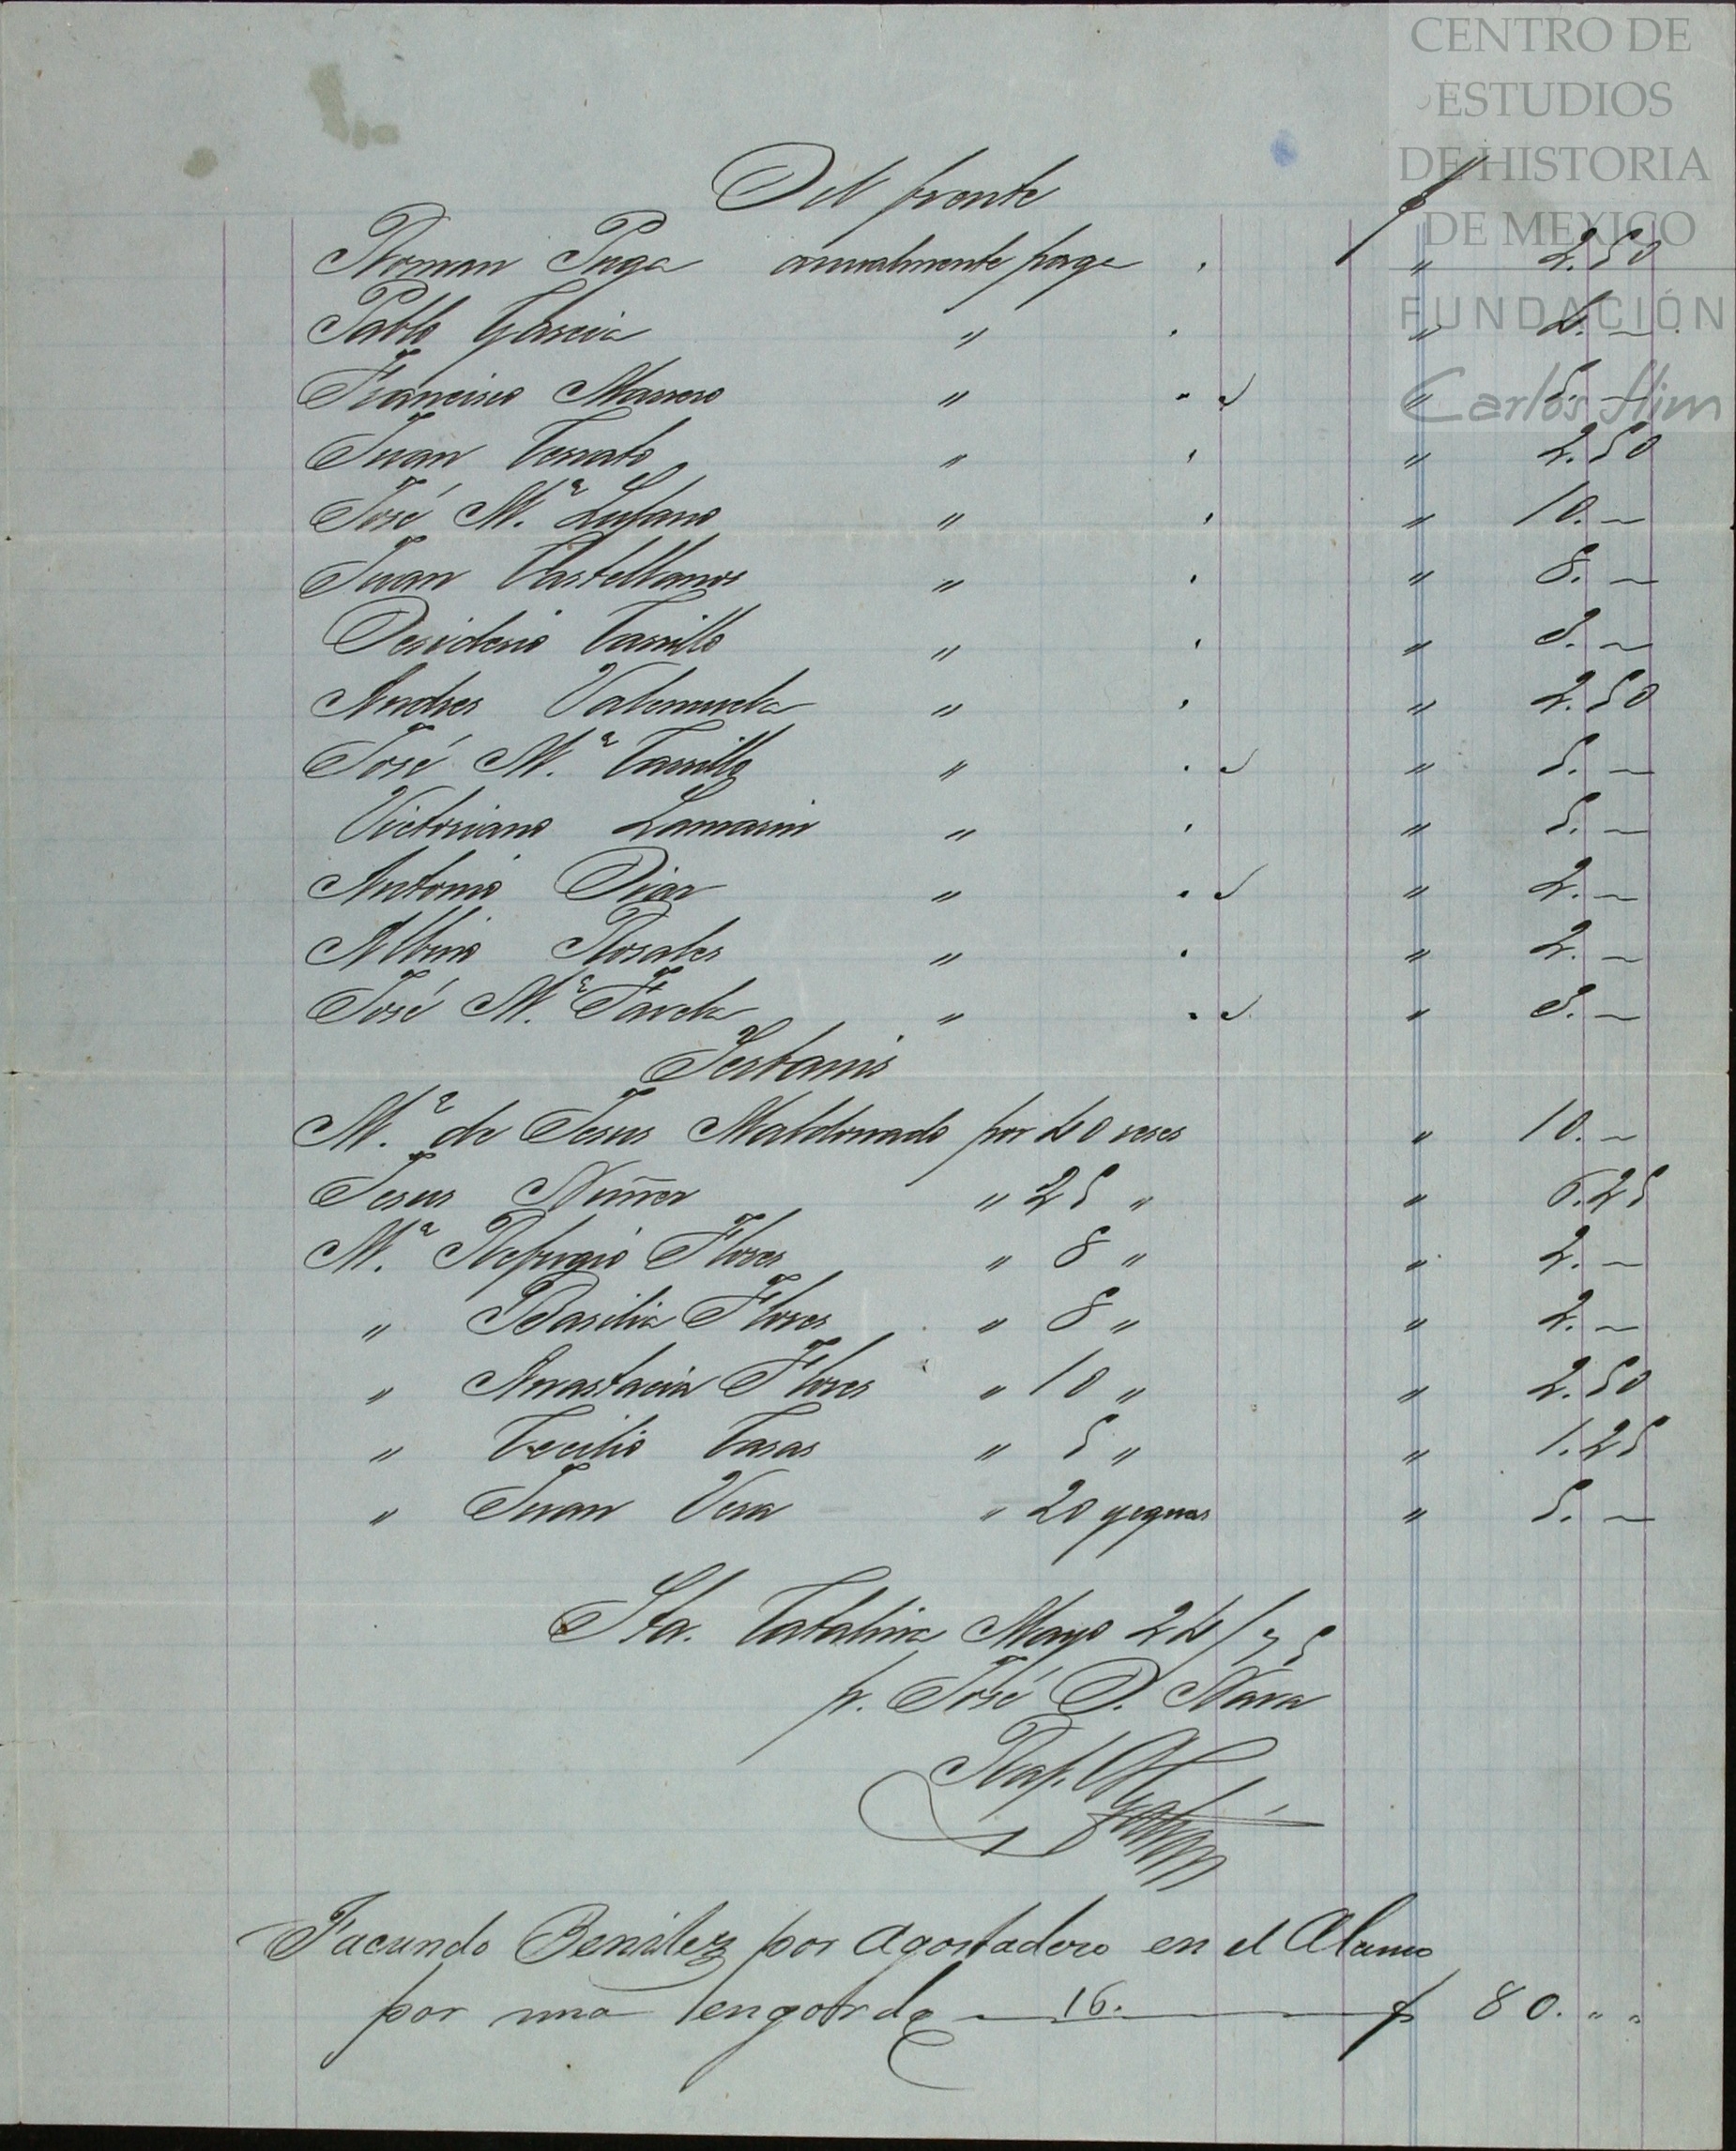 CENTRO DE
ESTUDIOS
DE HISTORIA
DE MEXICO
FUNDACIÓN
Carlos Slim
Del frente $
Roman Puga anualmente paga . " 2.50
Pablo Garcia " . " 4. —
Francisco Marrero " . " 5. —
Juan Serrato " . " 2.50
José M.ª Lufano " . " 10. —
Juan Castellanos " . " 8. —
Desiderio Carrillo " . " 3. —
Andres Valenzuela " . " 2.50
José M.ª Carrillo " . " 5. —
Victoriano Lamarin " . " 5. —
Antonio Diaz " . " 2. —
Albino Rosales " . " 2. —
José M.ª Favela " . " 3. —
M.ª de Jesus Maldonado por 40 reses " 10. —
Jesus Nuñez " 25 " " 6.25
M.ª Refugio Flores " 8 " " 2. —
" Basilia Flores " 8 " " 2. —
" Anastacia Flores " 10 " " 2.50
" Cecilio Casas " 5 " " 1.25
" Juan Vera " 20 yeguas " 5. —
Sta. Catalina Mayo 24/75
p. José D. Nava
Raf.
Facundo Benitez por agostadero en el Alamo
por una engorda 16. $ 80. " "